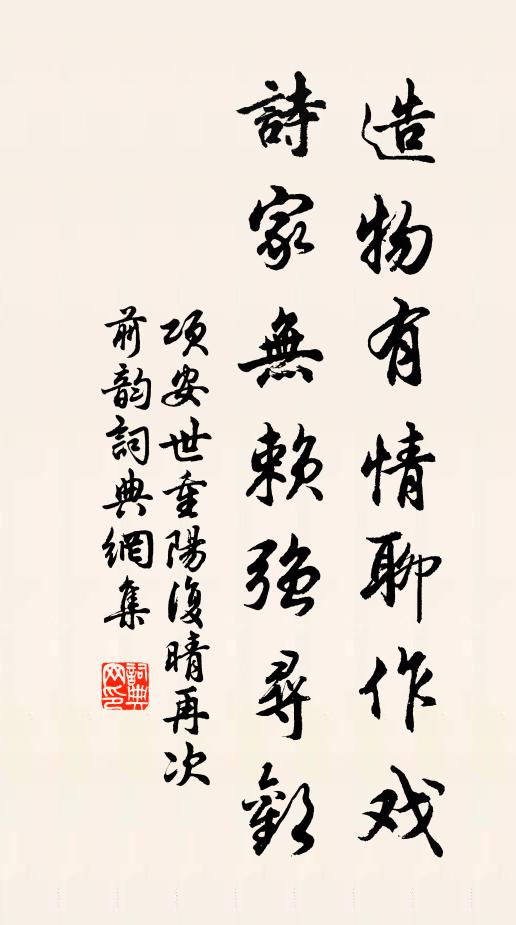 造物有情聊作戏
詩家無賴強尋歡
項安世重陽復晴再次
前韵詞典網集
詞典
网印